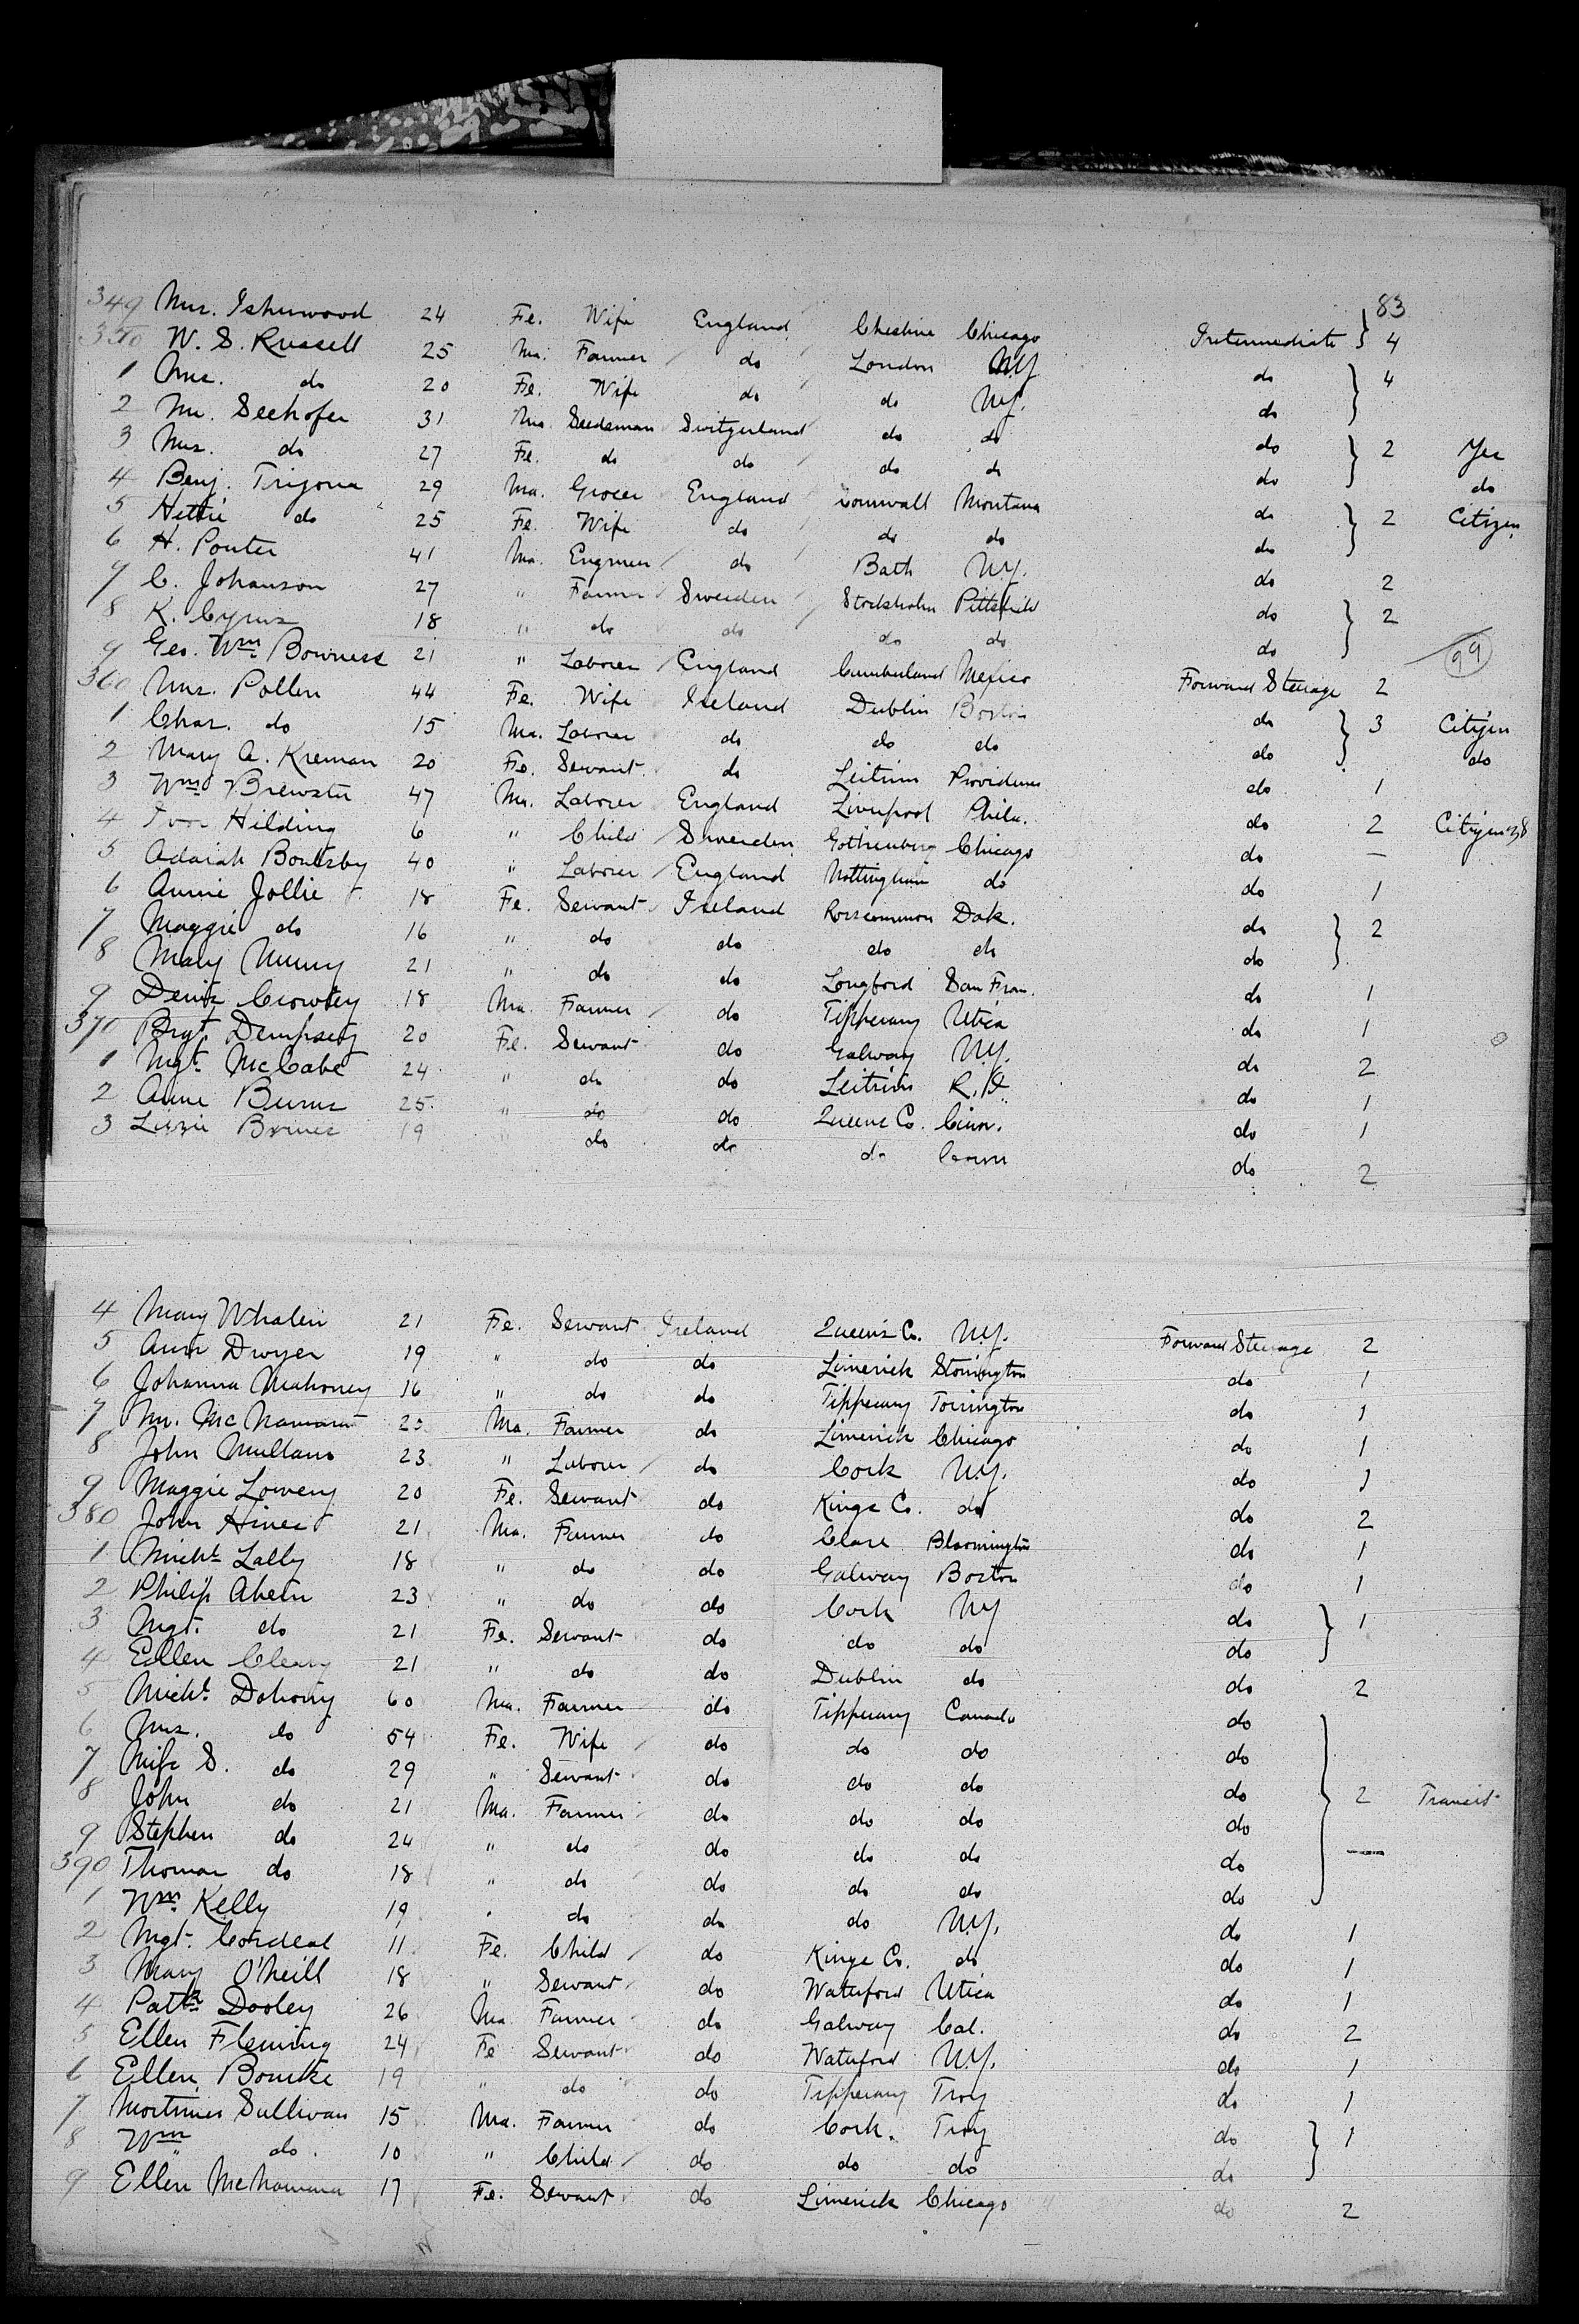 83
349 Mrs. Isherwood 24 Fe. Wife England Cheshire Chicago Intermediate } 4
350 W. S. Russell 25 Ma. Farmer do London N.Y. do } 4
1 Mrs. do 20 Fe. Wife do do N.Y. do
2 Mr. Seehofer 31 Ma. Seedsman Switzerland do do do } 2 Yes
3 Mrs. do 27 Fe. do do do do do do
4 Benj. 29 Ma. Grocer England Cornwall Montana do } 2 Citizen
5 Hettie do 25 Fe. Wife do do do do
6 H. 41 Ma. do Bath N.Y. do 2
7 C. Johanson 27 " Farmer Sweeden Stockholm Pittsfield do } 2
8 K. Cyrus 18 " do do do do do
99
9 Geo. Wm. Bowness 21 " Laborer England Cumberland Mexico Forward Steerage 2
360 Mrs. Pollen 44 Fe. Wife Ireland Dublin Boston do } 3 Citizen
1 Chas. do 15 Ma. Laborer do do do do do
2 Mary A. Kreman 20 Fe. Servant do Leitrim Providence do 1
3 Wm. Brewster 47 Ma. Laborer England Liverpool Phila. do 2 Citizen
4 Hilding 6 " Child Sweeden Gothenberg Chicago do —
5 40 " Laborer England Nottingham do do 1
6 Annie Jollie 18 Fe. Servant Ireland Roscommon Dak. do } 2
7 Maggie do 16 " do do do do do
8 Mary 21 " do do Longford San Fran. do 1
9 Denis Crowley 18 Ma. Farmer do Tipperary Utica do 1
370 Brgt. Dempsey 20 Fe. Servant do Galway N.Y. do 2
1 Mgt. McCabe 24 " do do Leitrim R.I. do 1
2 Anne Burns 25 " do do Queens Co. Cinn. do 1
3 Lizzie 19 " do do do do 2
4 Mary Whalen 21 Fe. Servant Ireland Queen's Co. N.Y. Forward Steerage 2
5 Ann Dwyer 19 " do do Limerick Stonington do 1
6 Johanna Mahoney 16 " do do Tipperary Torrington do 1
7 McNamara Ma. Farmer do Limerick Chicago do 1
8 John Mullane 23 " Laborer do Cork N.Y. do 1
9 Maggie Lowery 20 Fe. Servant do Kings Co. do do 2
380 John Hines 21 Ma. Farmer do Clare Bloomington do 1
1 Michl. Lally 18 " do do Galway Boston do 1
2 Philip Ahern 23 " do do Cork N.Y do } 1
3 Mgt. do 21 Fe. Servant do do do do
4 Ellen Cleary 21 " do do Dublin do do 2
5 Michl. Dohony 60 Ma. Farmer do Tipperary Canada do
6 Mrs. do 54 Fe. Wife do do do do
7 Miss S. do 29 " Servant do do do do } 2 Transit
8 John do 21 Ma. Farmer do do do do
9 Stephen do 24 " do do do do do —
390 Thomas do 18 " do do do do do
1 Wm. Kelly 19 " do do do N.Y. do 1
2 Mgt. Cordeal 11 Fe. Child do Kings Co. do do 1
3 Mary O'Neill 18 " Servant do Waterford Utica do 1
4 Patk. Dooley 26 Ma. Farmer do Galway Cal. do 2
5 Ellen Fleming 24 Fe Servant do Waterford N.Y. do 1
6 Ellen Bourke 19 " do do Tipperary Troy do 1
7 Mortimer Sullivan 15 Ma. Farmer do Cork. Troy do } 1
8 Wm. do 10 " Child do do do do
9 Ellen McNamara 17 Fe. Servant do Limerick Chicago do 2